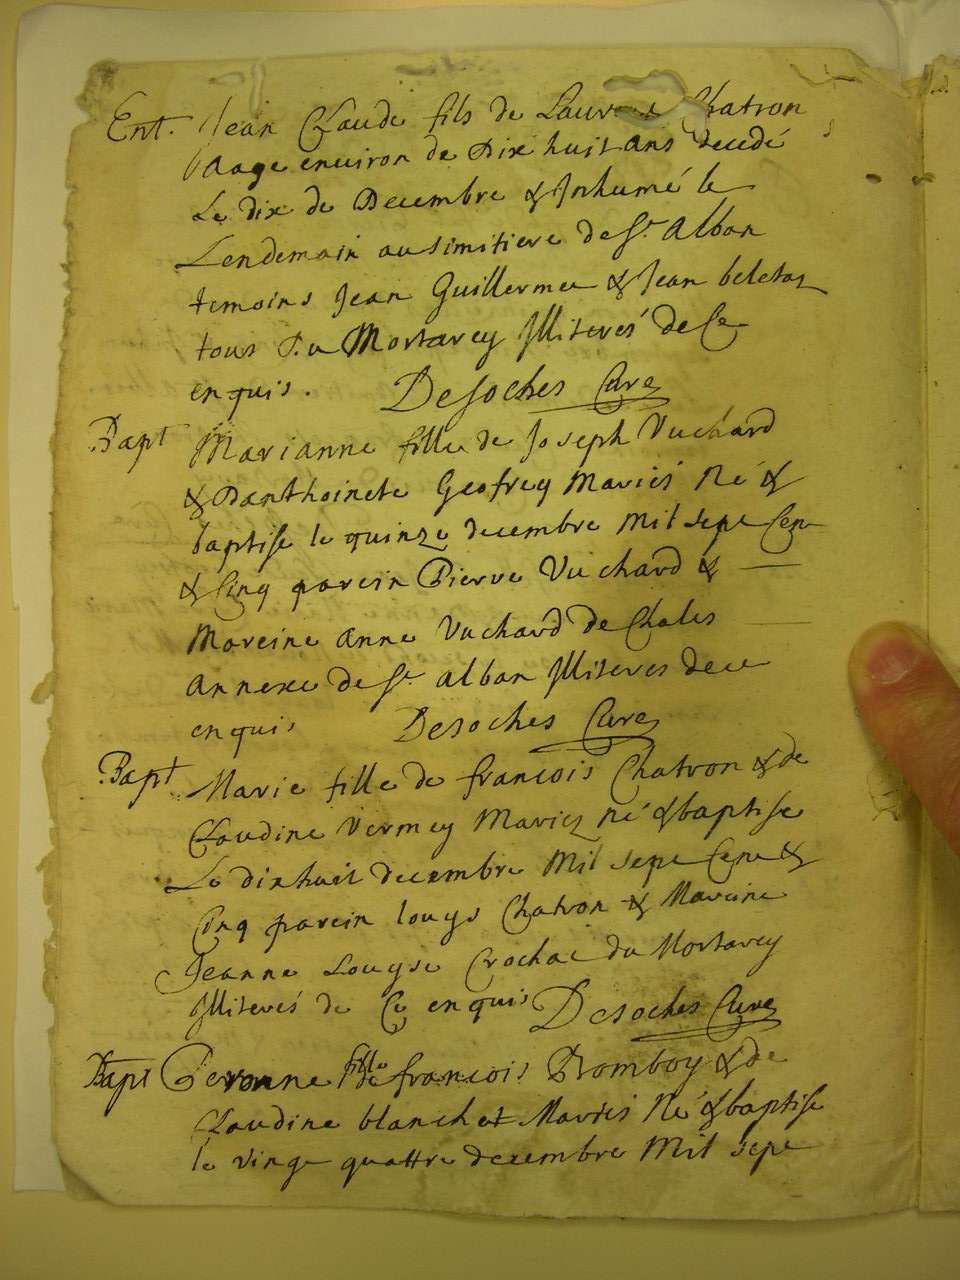 Ent. Jean Claude fils de Laurent Chatron
aage environ de Dix huit ans decedé
Le dix de Decembre & Inhumé le
Lendemain au simitiere de St Alban
temoins Jean Guillermer & Jean beletaz
tous Du Mortarey Illiterés de Ce
enquis. Desoches Curé
Bapt Marianne fille de Joseph Vuchard
& Danthoinete Geofrey Mariés Né &
baptise le quinze decembre Mil sept Cent
& Cinq parein Pierre Vuchard &
Mareine Anne Vuchard de Chales
Annexe de St alban Illiteres de ce
enquis Desoches Curé
Bapt Marie fille de francois Chatron & de
Claudine Vermey Mariez né & baptise
Le dixhuit decembre Mil sept Cent &
Cinq parein louys Chatron & Mareine
Jeanne Louyse Crochat du Mortarey
Illiterés de Ce enquis Desoches Curé
Bapt Peronne fille de francois Promboy & de
Claudine blanchet Mariés Né & baptise
le vingt quattre decembre Mil sept